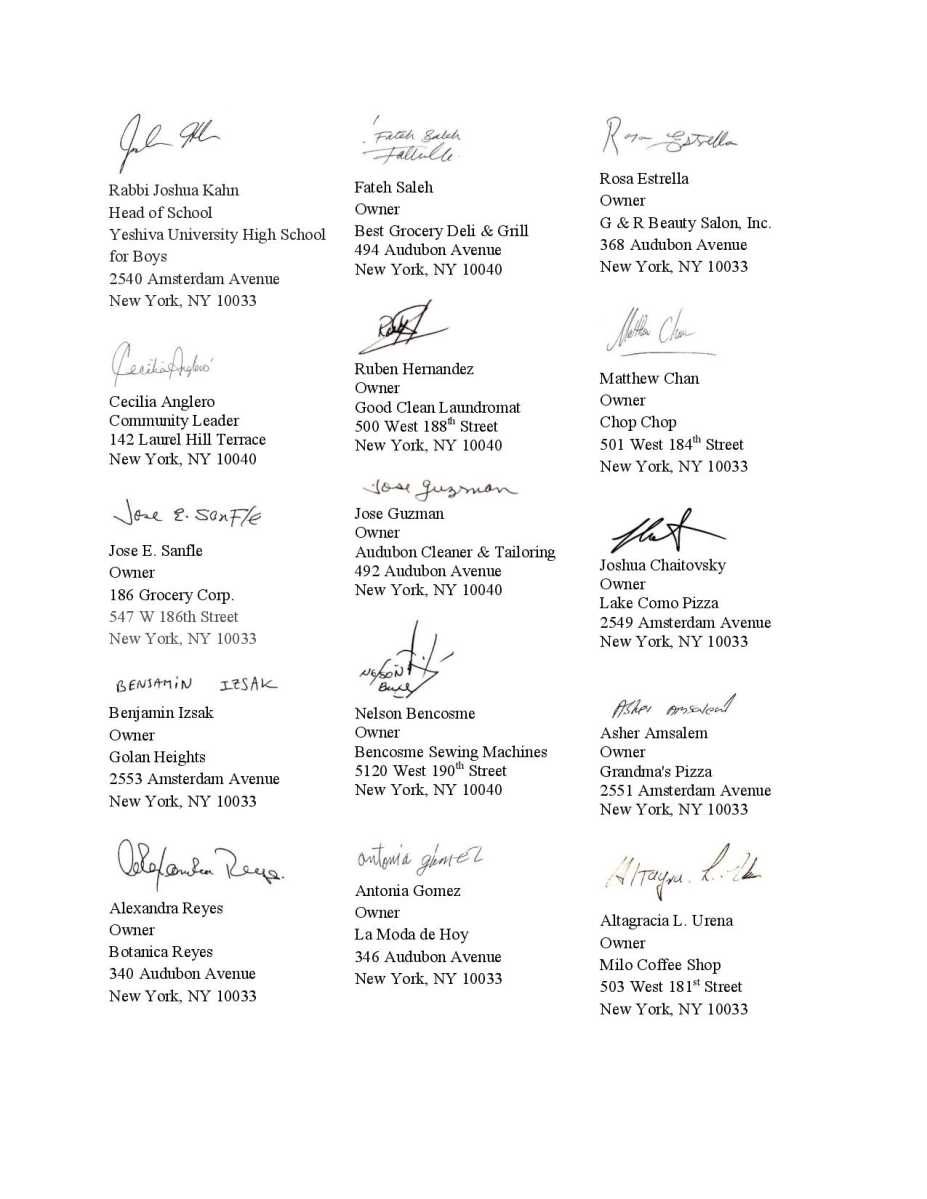 Rabbi Joshua Kahn
Head of School
Yeshiva University High School
for Boys
2540 Amsterdam Avenue
New York, NY 10033
Cecilia Anglero
Cecilia Anglero
Community Leader
142 Laurel Hill Terrace
New York, NY 10040
Jose E. Sanfle
Jose E. Sanfle
Owner
186 Grocery Corp.
547 W 186th Street
New York, NY 10033
BENJAMIN IZSAK
Benjamin Izsak
Owner
Golan Heights
2553 Amsterdam Avenue
New York, NY 10033
Alexandra Reyes.
Alexandra Reyes
Owner
Botanica Reyes
340 Audubon Avenue
New York, NY 10033
Fateh Saleh
Fateh Saleh
Owner
Best Grocery Deli & Grill
494 Audubon Avenue
New York, NY 10040
Ruben Hernandez
Owner
Good Clean Laundromat
500 West 188th Street
New York, NY 10040
Jose Guzman
Jose Guzman
Owner
Audubon Cleaner & Tailoring
492 Audubon Avenue
New York, NY 10040
Nelson
Nelson Bencosme
Owner
Bencosme Sewing Machines
5120 West 190th Street
New York, NY 10040
Antonia Gomez
Antonia Gomez
Owner
La Moda de Hoy
346 Audubon Avenue
New York, NY 10033
Rosa Estrella
Rosa Estrella
Owner
G & R Beauty Salon, Inc.
368 Audubon Avenue
New York, NY 10033
Matthew Chan
Matthew Chan
Owner
Chop Chop
501 West 184th Street
New York, NY 10033
Joshua Chaitovsky
Owner
Lake Como Pizza
2549 Amsterdam Avenue
New York, NY 10033
Asher Amsalem
Asher Amsalem
Owner
Grandma's Pizza
2551 Amsterdam Avenue
New York, NY 10033
Altagracia L. Urena
Owner
Milo Coffee Shop
503 West 181st Street
New York, NY 10033